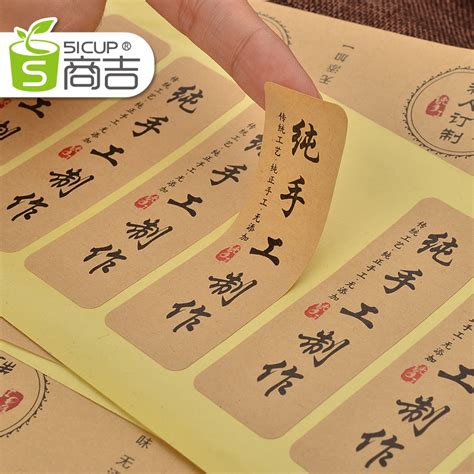 5ICUP®
商吉
纯手工制作
传统工艺·纯正手工·无添加
纯手工制作
传统工艺·纯正手工·无添加
纯手工制作
传统工艺·纯正手工·无添加
手工制作
手工制作
工制作
作
订制
味 无